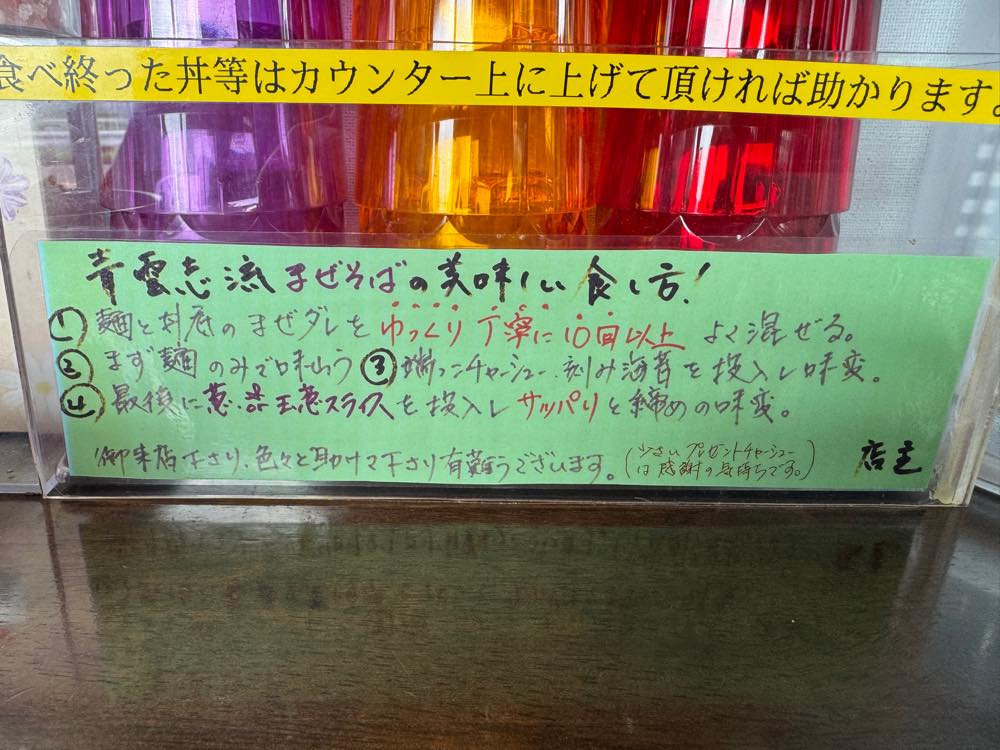 食べ終った丼等はカウンター上に上げて頂ければ助かります。
青雲志流まぜそばの美味しい食し方!
① 麺と丼底のまぜダレをゆっくり丁寧に10回以上よく混ぜる。
② まず麺のみで味わう ③ 端っこチャーシュー、刻み海苔を投入し味変。
④ 最後に葱、紫玉葱スライスを投入しサッパリと締めの味変。
御来店下さり、色々と助けて下さり有難うございます。(小さいプレゼントチャーシューは感謝の気持ちです。) 店主